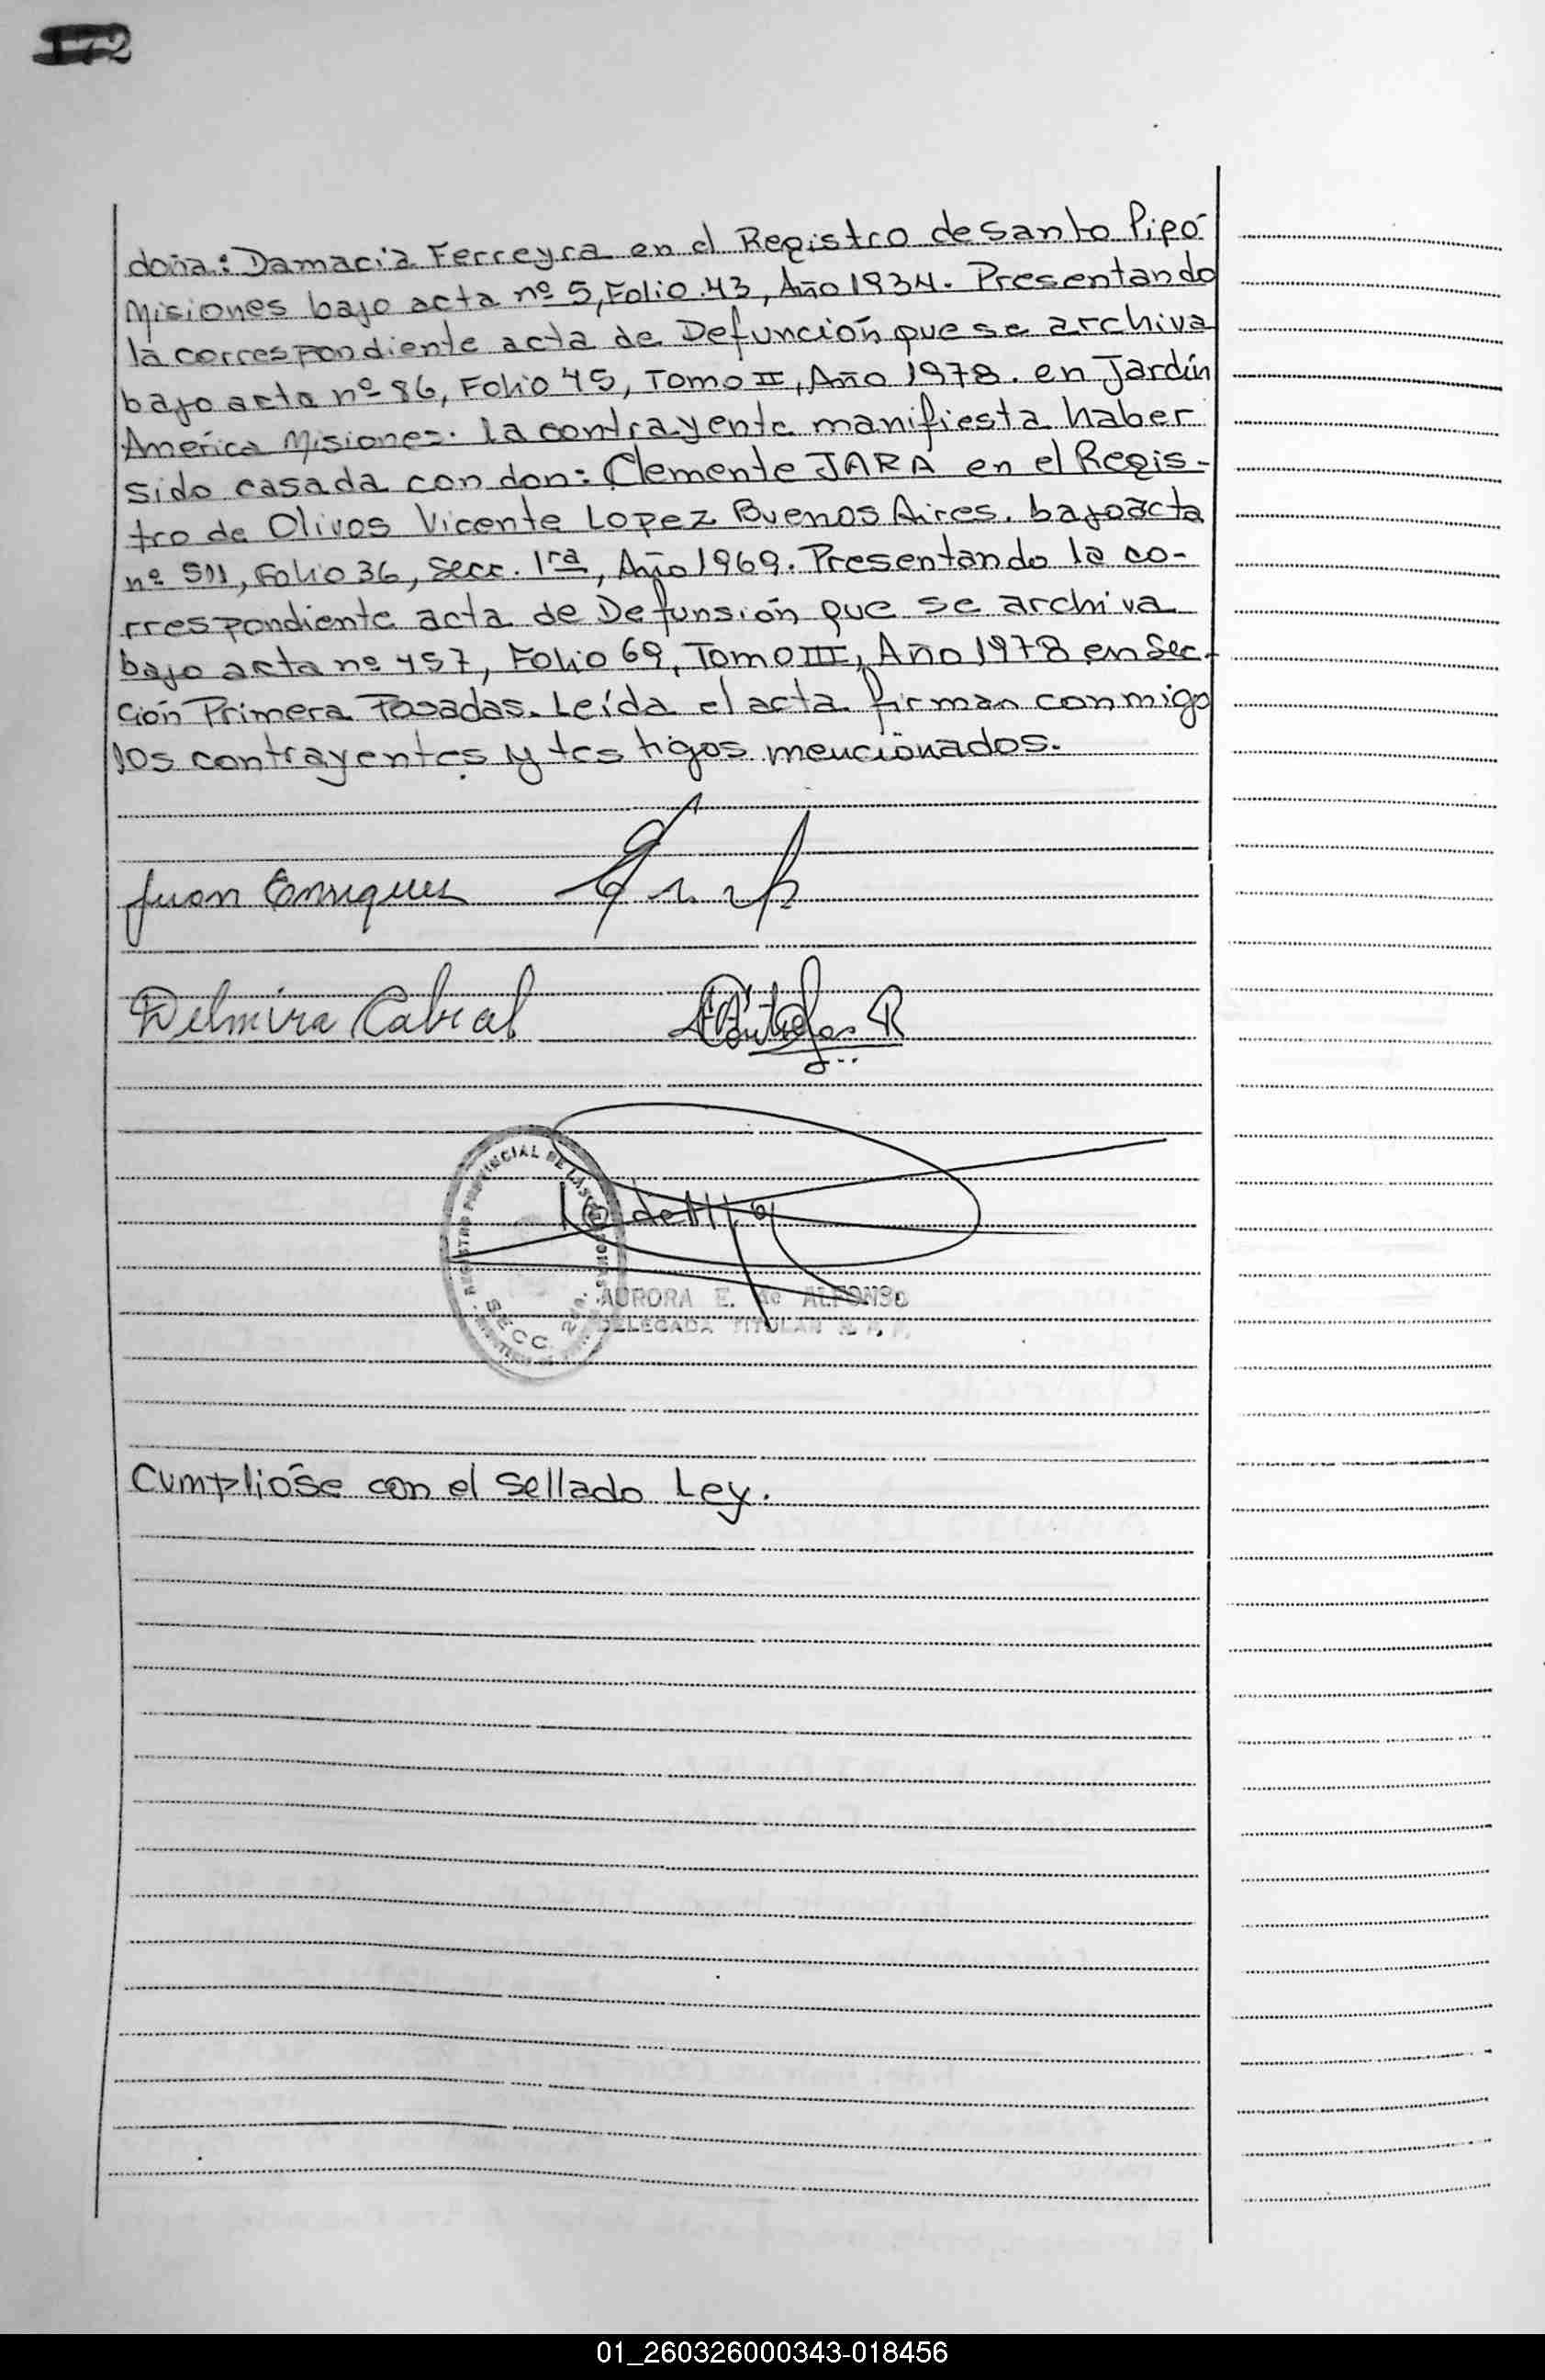 172
doña: Damacia Ferreyra en el Registro de Santo Pipó
Misiones bajo acta nº 5, Folio 43, Año 1934. Presentando
la correspondiente acta de Defunción que se archiva
bajo acta nº 86, Folio 45, Tomo II, Año 1978. en Jardín
América Misiones. la contrayente manifiesta haber
sido casada con don: Clemente JARA en el Regis-
tro de Olivos Vicente Lopez Buenos Aires. bajo acta
nº 511, Folio 36, Secc. 1ra, Año 1969. Presentando la co-
rrespondiente acta de Defunsión que se archiva
bajo acta nº 457, Folio 69, Tomo III, Año 1978 en Sec-
ción Primera Posadas. Leída el acta firman conmigo
los contrayentes y testigos mencionados.
Juan Enriques
Delmira Cabral
REGISTRO PROVINCIAL DE LAS PERSONAS
SECC. 2da.
AURORA E. de ALFONSO
DELEGADA TITULAR R. P. P.
Cumplióse con el sellado Ley.
01_260326000343-018456